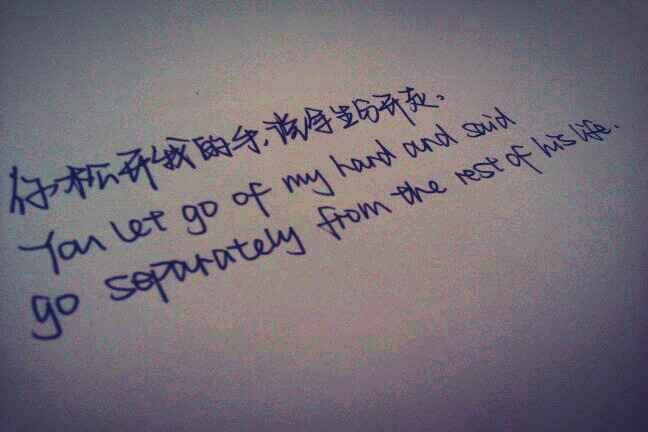 你松开我的手,说余生分开走.
You let go of my hand and said
go separately from the rest of his life.